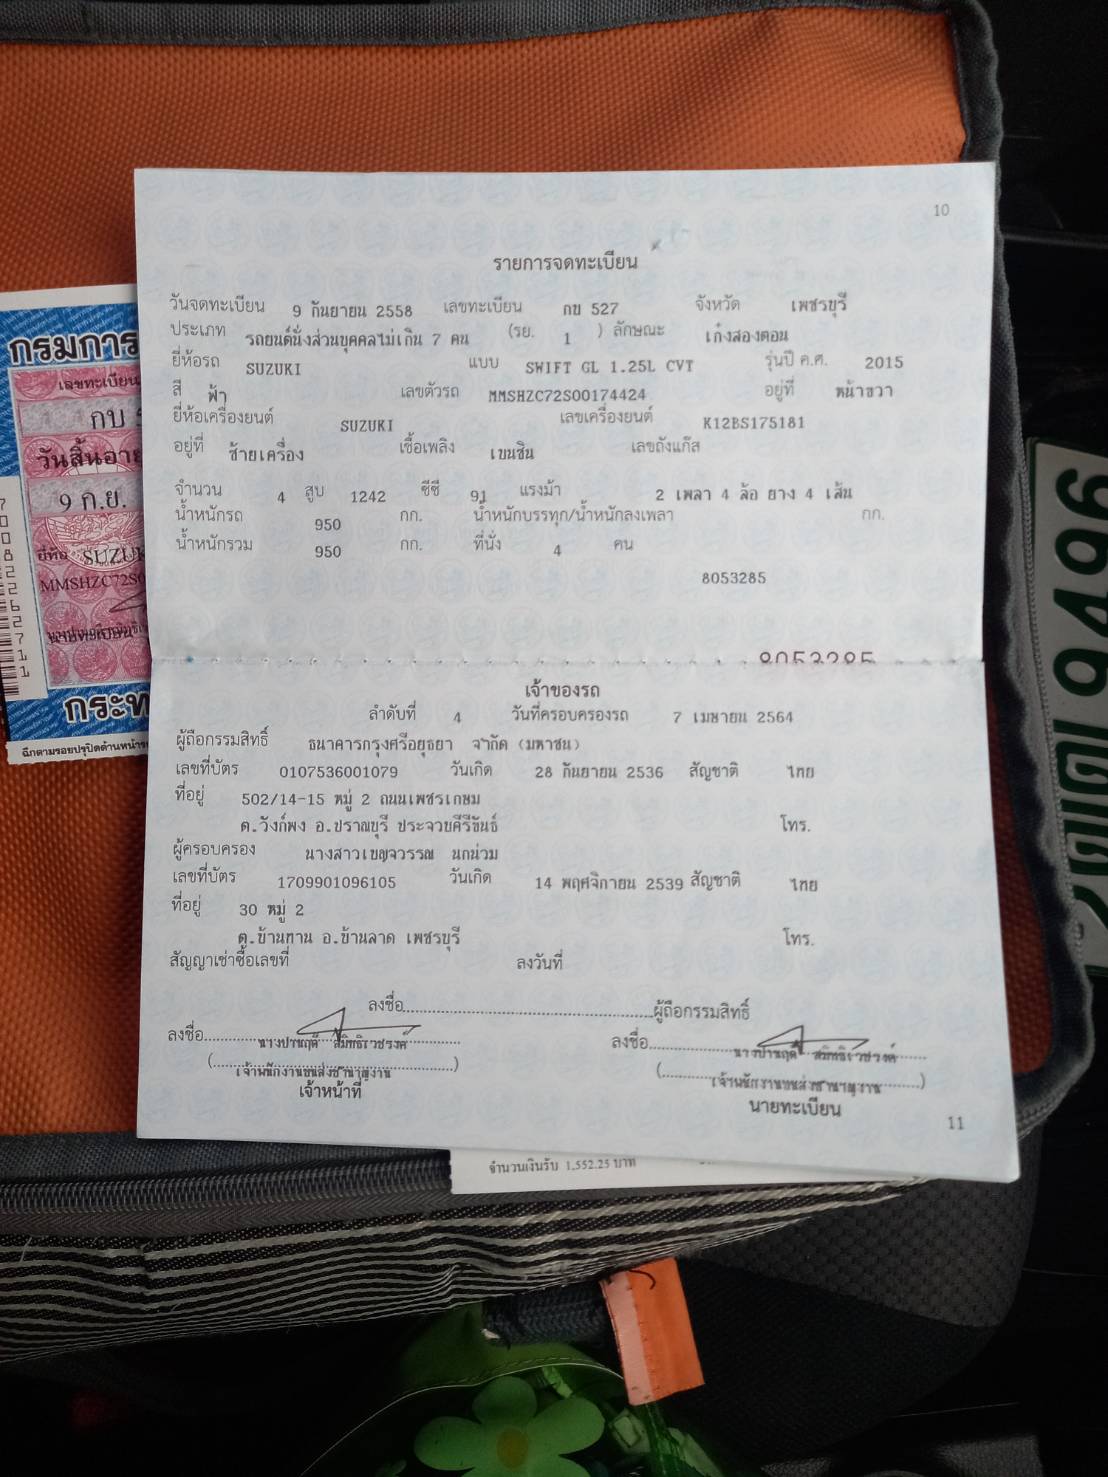 10
รายการจดทะเบียน
วันจดทะเบียน 9 กันยายน 2558 เลขทะเบียน กข 527 จังหวัด เพชรบุรี
ประเภท รถยนต์นั่งส่วนบุคคลไม่เกิน 7 คน (รย. 1 ) ลักษณะ เก๋งสองตอน
ยี่ห้อรถ SUZUKI แบบ SWIFT GL 1.25L CVT รุ่นปี ค.ศ. 2015
สี ฟ้า เลขตัวรถ MMSHZC72S00174424 อยู่ที่ หน้าขวา
ยี่ห้อเครื่องยนต์ SUZUKI เลขเครื่องยนต์ K12BS175181
อยู่ที่ ซ้ายเครื่อง เชื้อเพลิง เบนซิน เลขถังแก๊ส
จำนวน 4 สูบ 1242 ซีซี 91 แรงม้า 2 เพลา 4 ล้อ ยาง 4 เส้น
น้ำหนักรถ 950 กก. น้ำหนักบรรทุก/น้ำหนักลงเพลา กก.
น้ำหนักรวม 950 กก. ที่นั่ง 4 คน
8053285
8053285
เจ้าของรถ
ลำดับที่ 4 วันที่ครอบครองรถ 7 เมษายน 2564
ผู้ถือกรรมสิทธิ์ ธนาคารกรุงศรีอยุธยา จำกัด (มหาชน)
เลขที่บัตร 0107536001079 วันเกิด 28 กันยายน 2536 สัญชาติ ไทย
ที่อยู่ 502/14-15 หมู่ 2 ถนนเพชรเกษม
ต.วังก์พง อ.ปราณบุรี ประจวบคีรีขันธ์ โทร.
ผู้ครอบครอง นางสาวเบญจวรรณ นกน่วม
เลขที่บัตร 1709901096105 วันเกิด 14 พฤศจิกายน 2539 สัญชาติ ไทย
ที่อยู่ 30 หมู่ 2
ต.บ้านทาน อ.บ้านลาด เพชรบุรี โทร.
สัญญาเช่าซื้อเลขที่ ลงวันที่
ลงชื่อ ผู้ถือกรรมสิทธิ์
ลงชื่อ ลงชื่อ
(เจ้าพนักงานขนส่งชำนาญงาน) (เจ้าพนักงานขนส่งชำนาญงาน)
เจ้าหน้าที่ นายทะเบียน
11
จำนวนเงินรับ 1,552.25 บาท
กรมการ
เลขทะเบียน
กข
วันสิ้นอายุ
9 ก.ย.
ยี่ห้อ SUZUK
MMSHZC72S0
นายทะเบียน
กระท
ฉีกตามรอยปรุปิดด้านหน้ารถ
9496